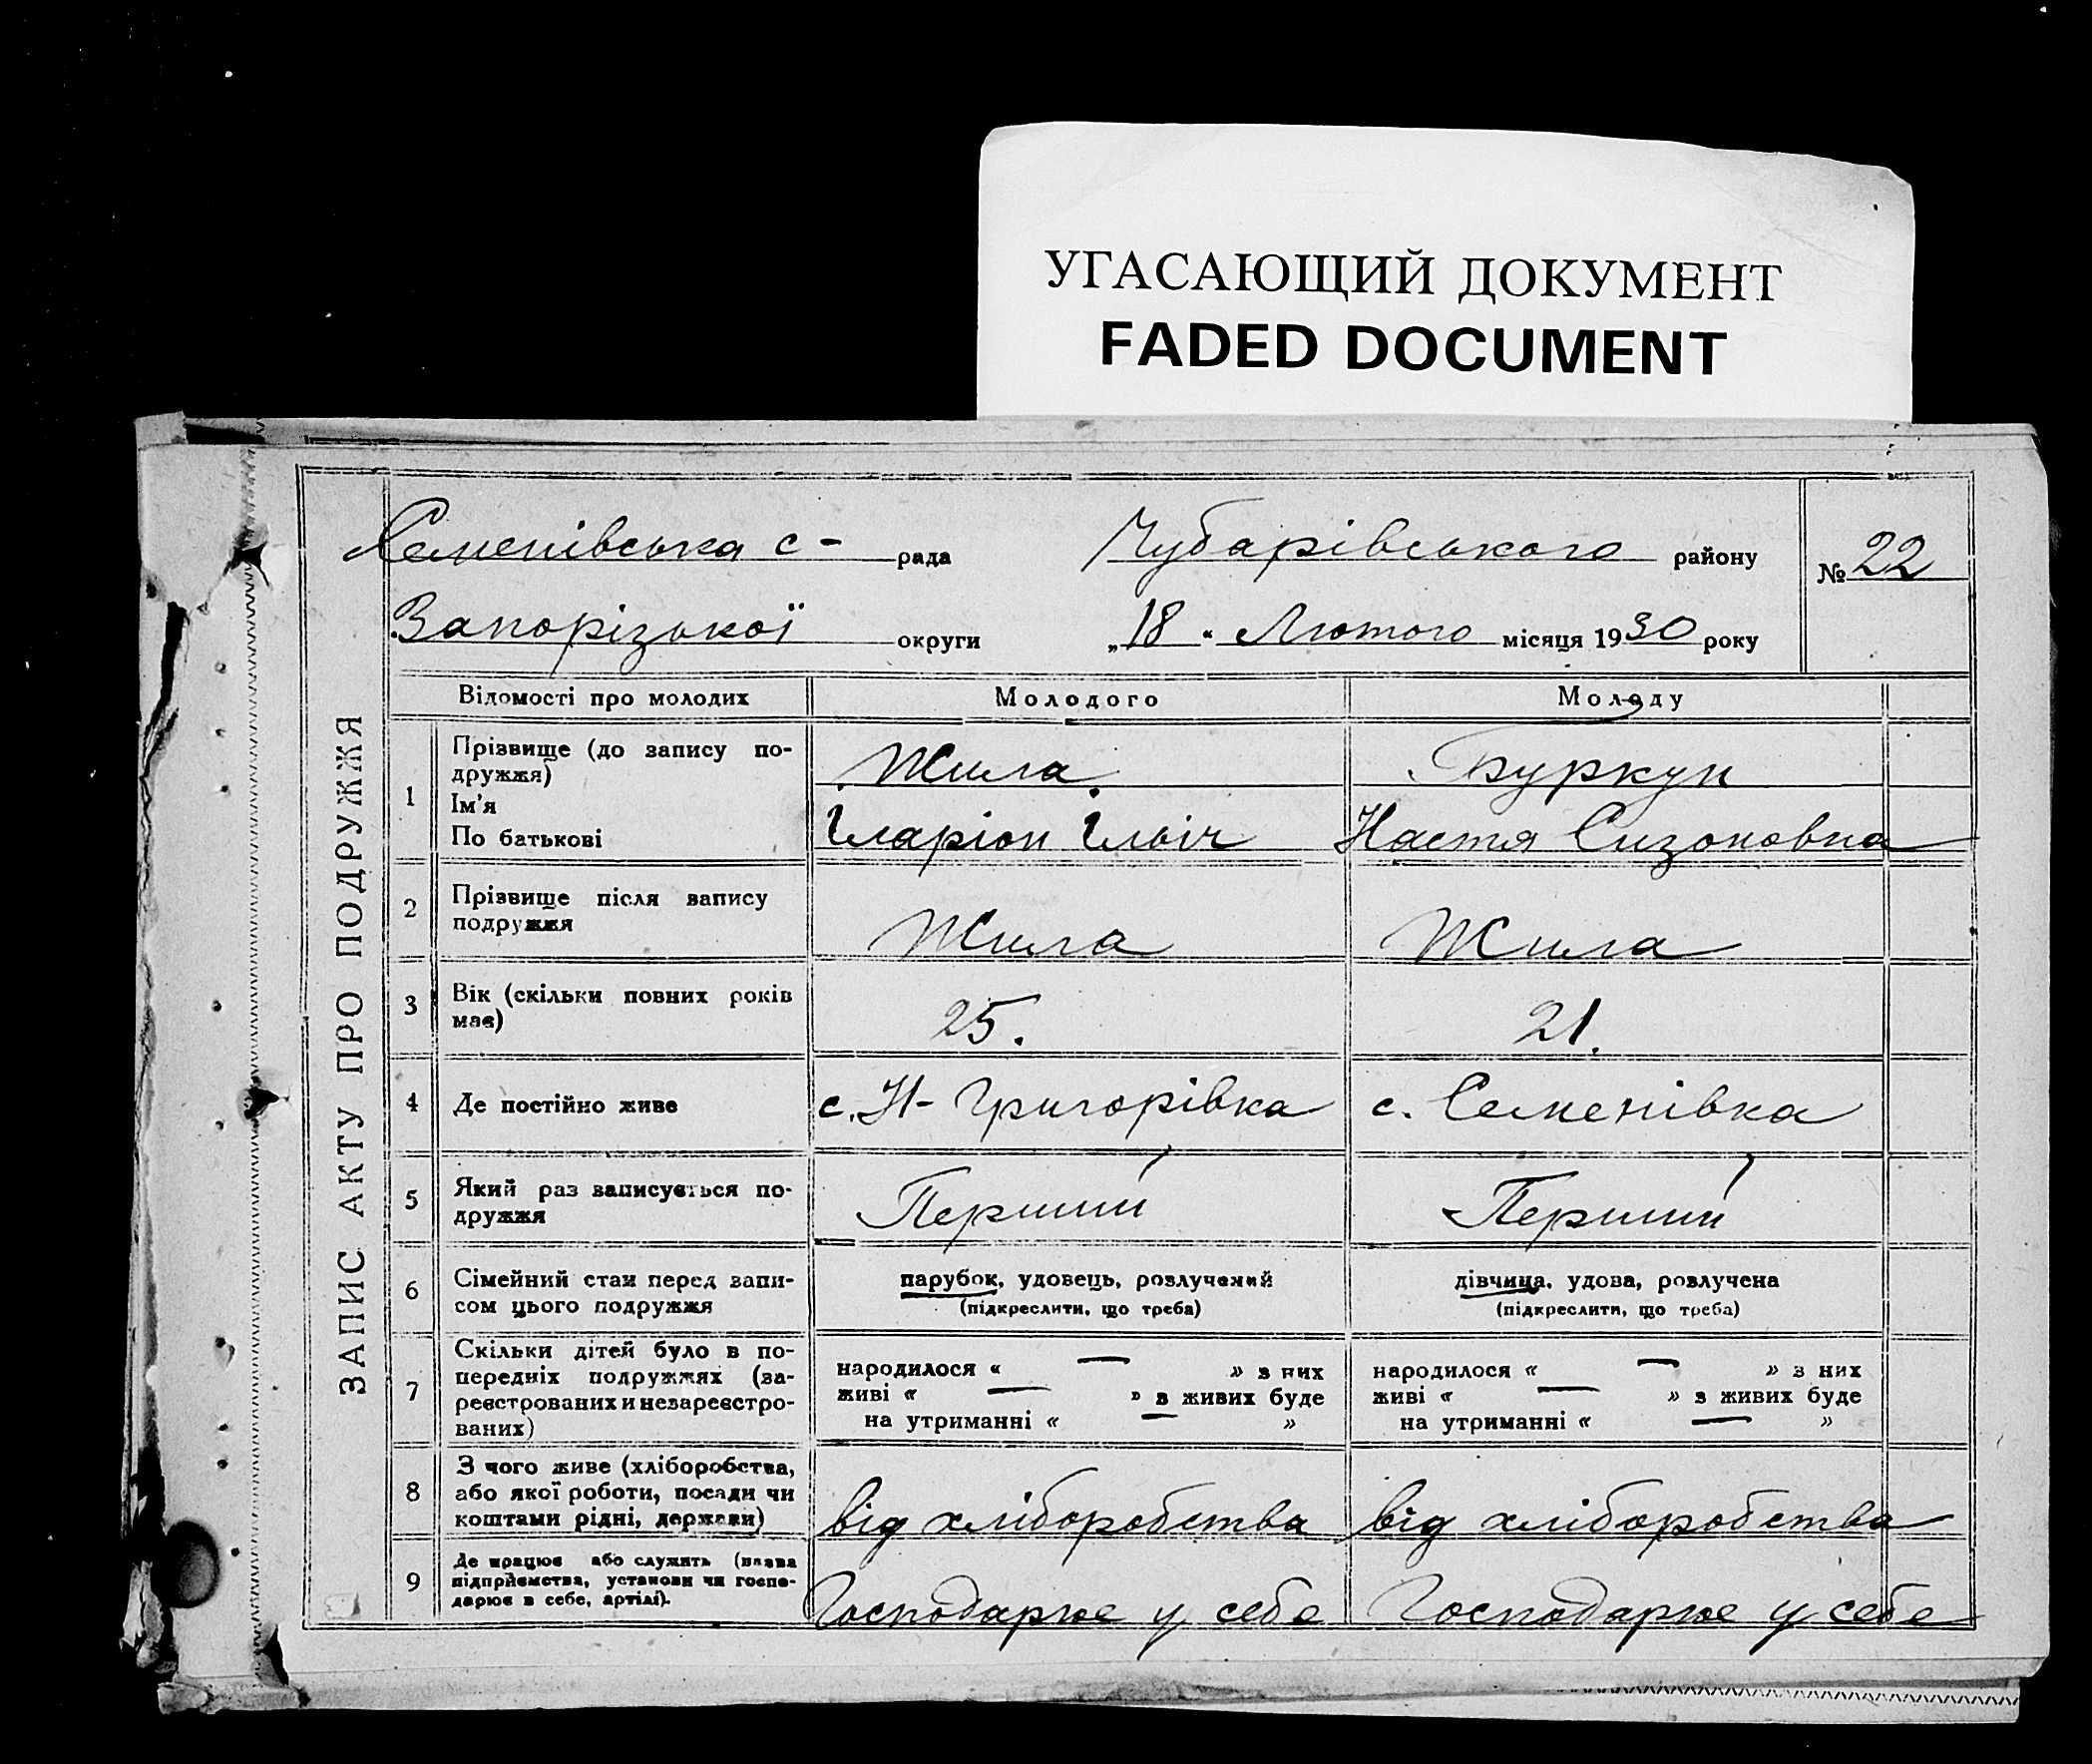 УГАСАЮЩИЙ ДОКУМЕНТ
FADED DOCUMENT
ЗАПИС АКТУ ПРО ПОДРУЖЖЯ
Семенівська с- рада Чубарівського району № 22
Запорізької округи „18" Лютого місяця 1930 року
Відомості про молодих Молодого Молоду
1 Прізвище (до запису по-
дружжя) Жила Буркун
Ім'я
По батькові Іларіон Ільіч Настя Сизоновна
2 Прізвище після запису
подружжя Жила Жила
3 Вік (скільки повних років
має) 25. 21.
4 Де постійно живе с. Н-Григорівка с. Семенівка
5 Який раз записується по-
дружжя Перший Перший
6 Сімейний стан перед запи-
сом цього подружжя парубок, удовець, розлучений дівчина, удова, розлучена
(підкреслити, що треба) (підкреслити, що треба)
7 Скільки дітей було в по-
передніх подружжях (за-
реєстрованих и незареєстро-
ваних)
народилося « — » з них народилося « — » з них
живі « — » з живих буде живі « — » з живих буде
на утриманні « — » на утриманні « — »
8 З чого живе (хліборобства,
або якої роботи, посади чи
коштами рідні, держави) від хліборобства від хліборобства
9 Де працює або служить (назва
підприємства, установи чи госпо-
дарює в себе, артілі). Господарює у себе Господарює у себе